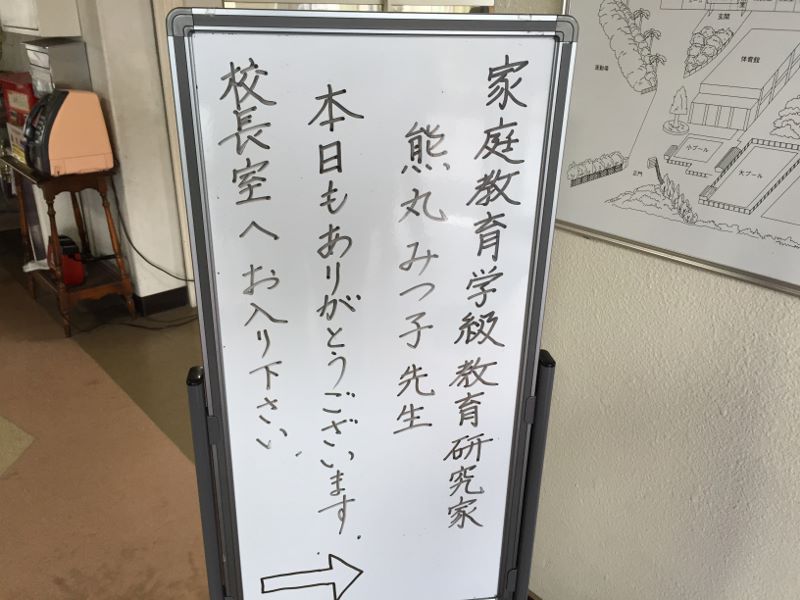 家庭教育学級教育研究家
熊丸みつ子先生
本日もありがとうございます.
校長室へお入り下さい.
玄関
体育館
運動場
小プール
大プール
正門